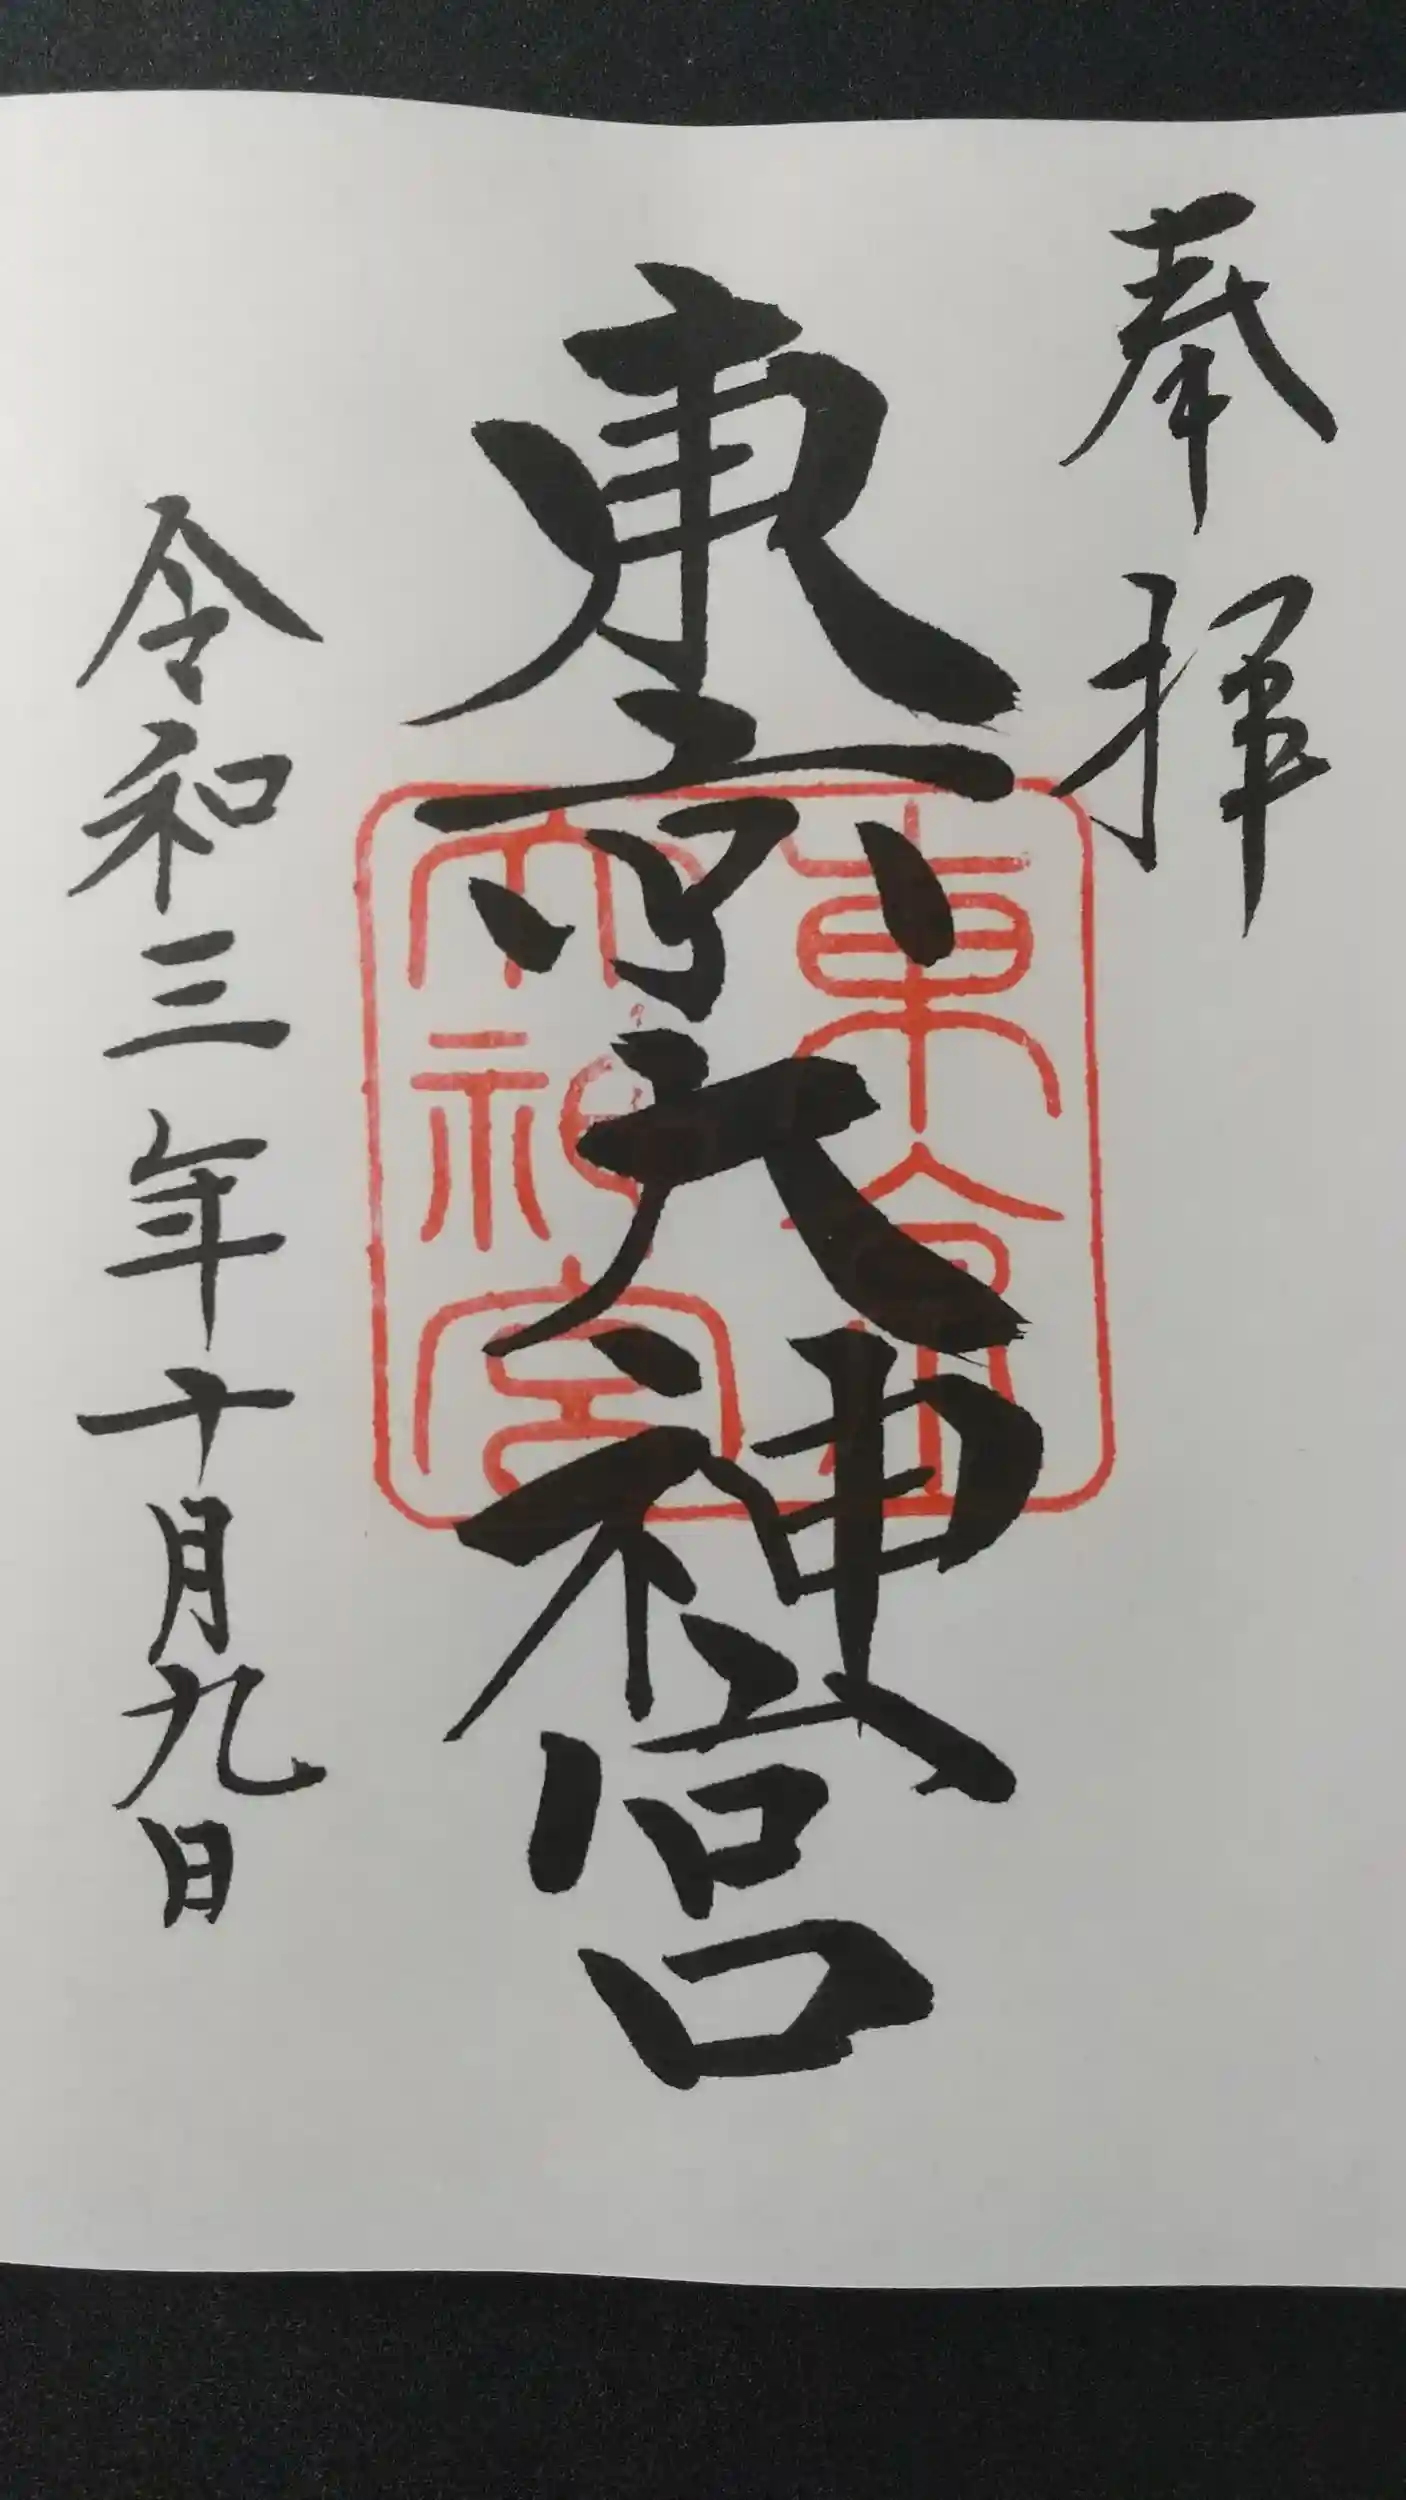 奉拝
東京大神宮
東京大神宮
令和三年十月九日